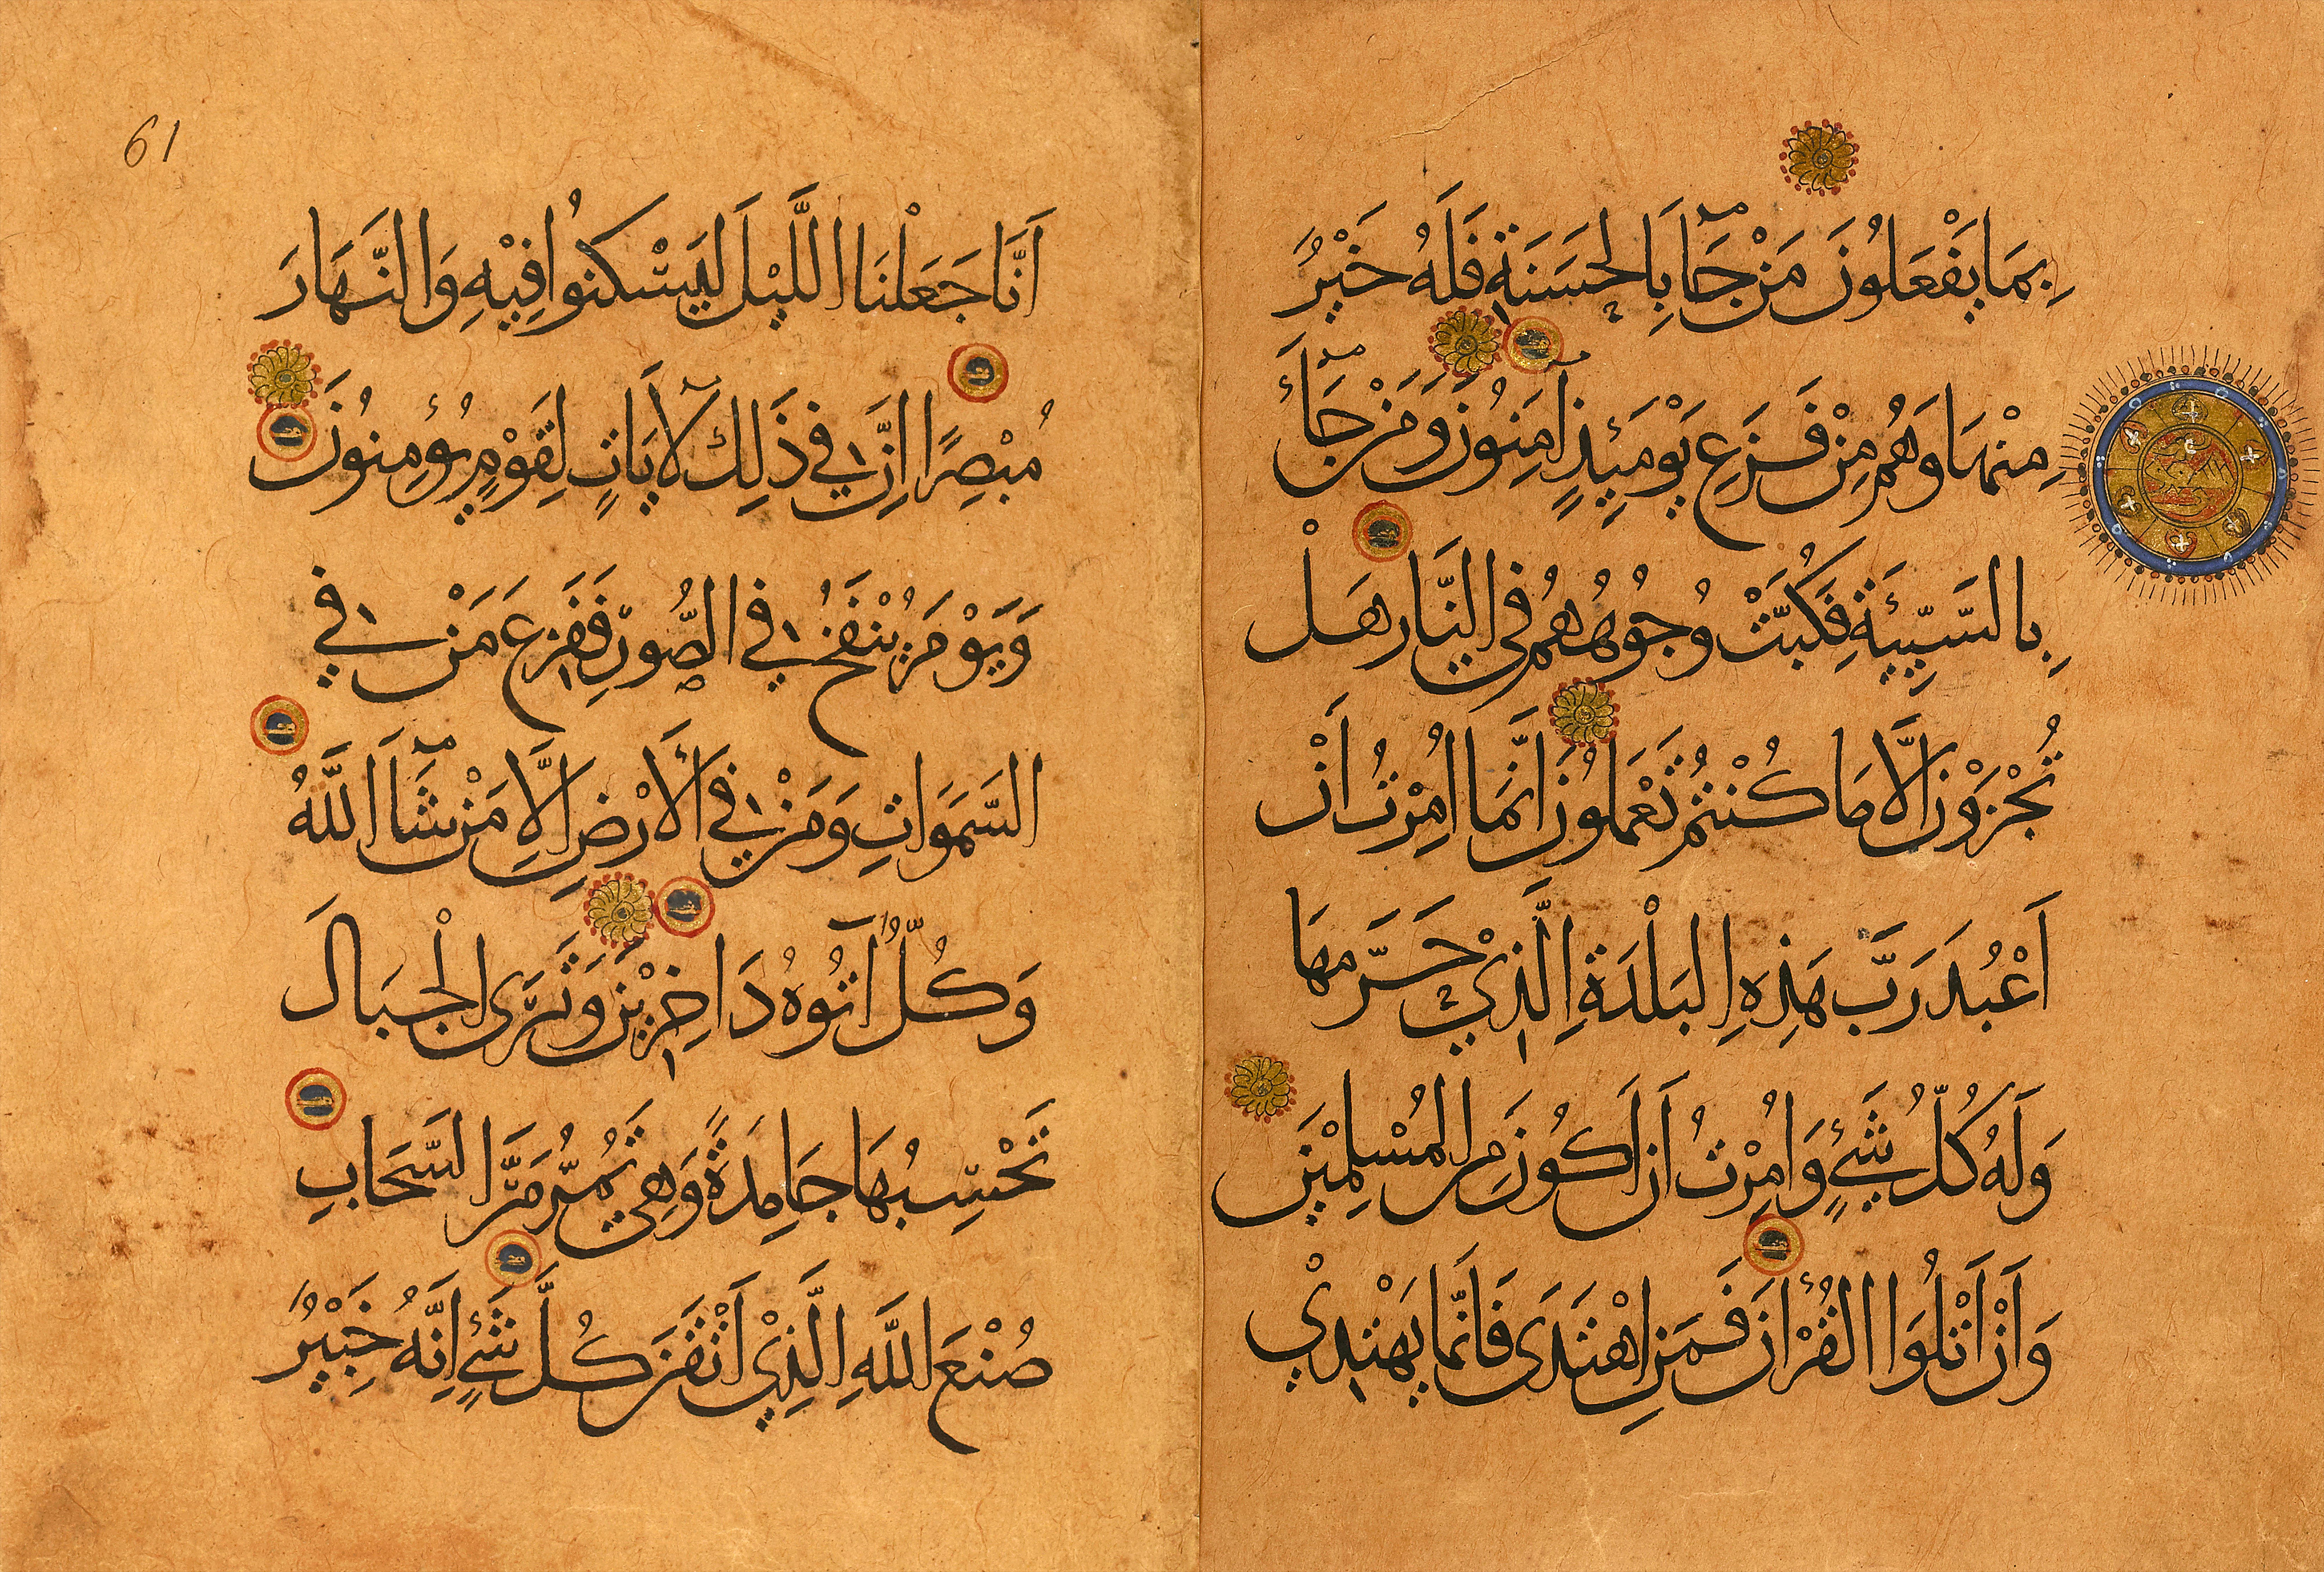 61
اَنَّا جَعَلْنَا اللَّيْلَ لِيَسْكُنُوا فِيْهِ وَالنَّهَارَ
مُبْصِرًا اِنَّ فِي ذَلِكَ لَآيَاتٍ لِقَوْمٍ يُؤْمِنُونَ
وَيَوْمَ يُنْفَخُ فِي الصُّوْرِ فَفَزِعَ مَنْ فِي
السَّمَوَاتِ وَمَنْ فِي الْأَرْضِ اِلَّا مَنْ شَآَ اللَّهُ
وَكُلٌّ آتُوهُ دَاخِرِيْنَ وَتَرَى الْجِبَالَ
تَحْسِبُهَا جَامِدَةً وَهِيَ تَمُرُّ مَرَّ السَّحَابِ
صُنْعَ اللَّهِ الَّذِيْ اَتْقَنَ كُلَّ شَيْءٍ اِنَّهُ خَبِيْرٌ
بِمَا يَفْعَلُونَ مَنْ جَآَ بِالْحَسَنَةِ فَلَهُ خَيْرٌ
مِنْهَا وَهُمْ مِنْ فَزَعِ يَوْمَئِذٍ آمِنُونَ وَمَنْ جَآءَ
بِالسَّيِّئَةِ فَكُبَّتْ وُجُوهُهُمْ فِي النَّارِ هَلْ
تُجْزَوْنَ اِلَّا مَا كُنْتُمْ تَعْمَلُونَ اِنَّمَا اُمِرْتُ اَنْ
اَعْبُدَ رَبَّ هَذِهِ الْبَلْدَةِ الَّذِيْ حَرَّمَهَا
وَلَهُ كُلُّ شَيْءٍ وَاُمِرْتُ اَنْ اَكُونَ مِنَ الْمُسْلِمِيْنَ
وَاَنْ اَتْلُوَا الْقُرْأَنَ فَمَنِ اهْتَدَى فَاِنَّمَا يَهْتَدِيْ